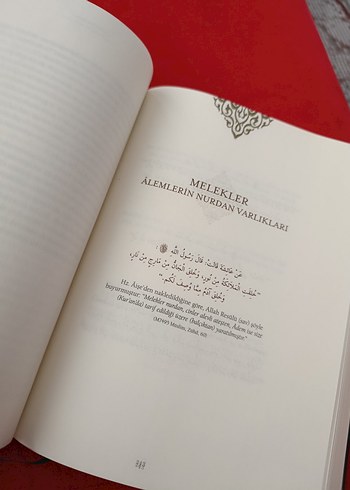 MELEKLER
ÂLEMLERİN NURDAN VARLIKLARI
عَنْ عَائِشَةَ قَالَتْ: قَالَ رَسُولُ اللَّهِ ﷺ:
"خُلِقَتِ الْمَلَائِكَةُ مِنْ نُورٍ، وَخُلِقَ الْجَانُّ مِنْ مَارِجٍ مِنْ نَارٍ،
وَخُلِقَ آدَمُ مِمَّا وُصِفَ لَكُمْ."
Hz. Âişe'den nakledildiğine göre, Allah Resûlü (sav) şöyle
buyurmuştur: "Melekler nurdan, cinler alevli ateşten, Âdem ise size
(Kur'an'da) tarif edildiği üzere (balçıktan) yaratılmıştır."
Müslim, Zühd, 60)